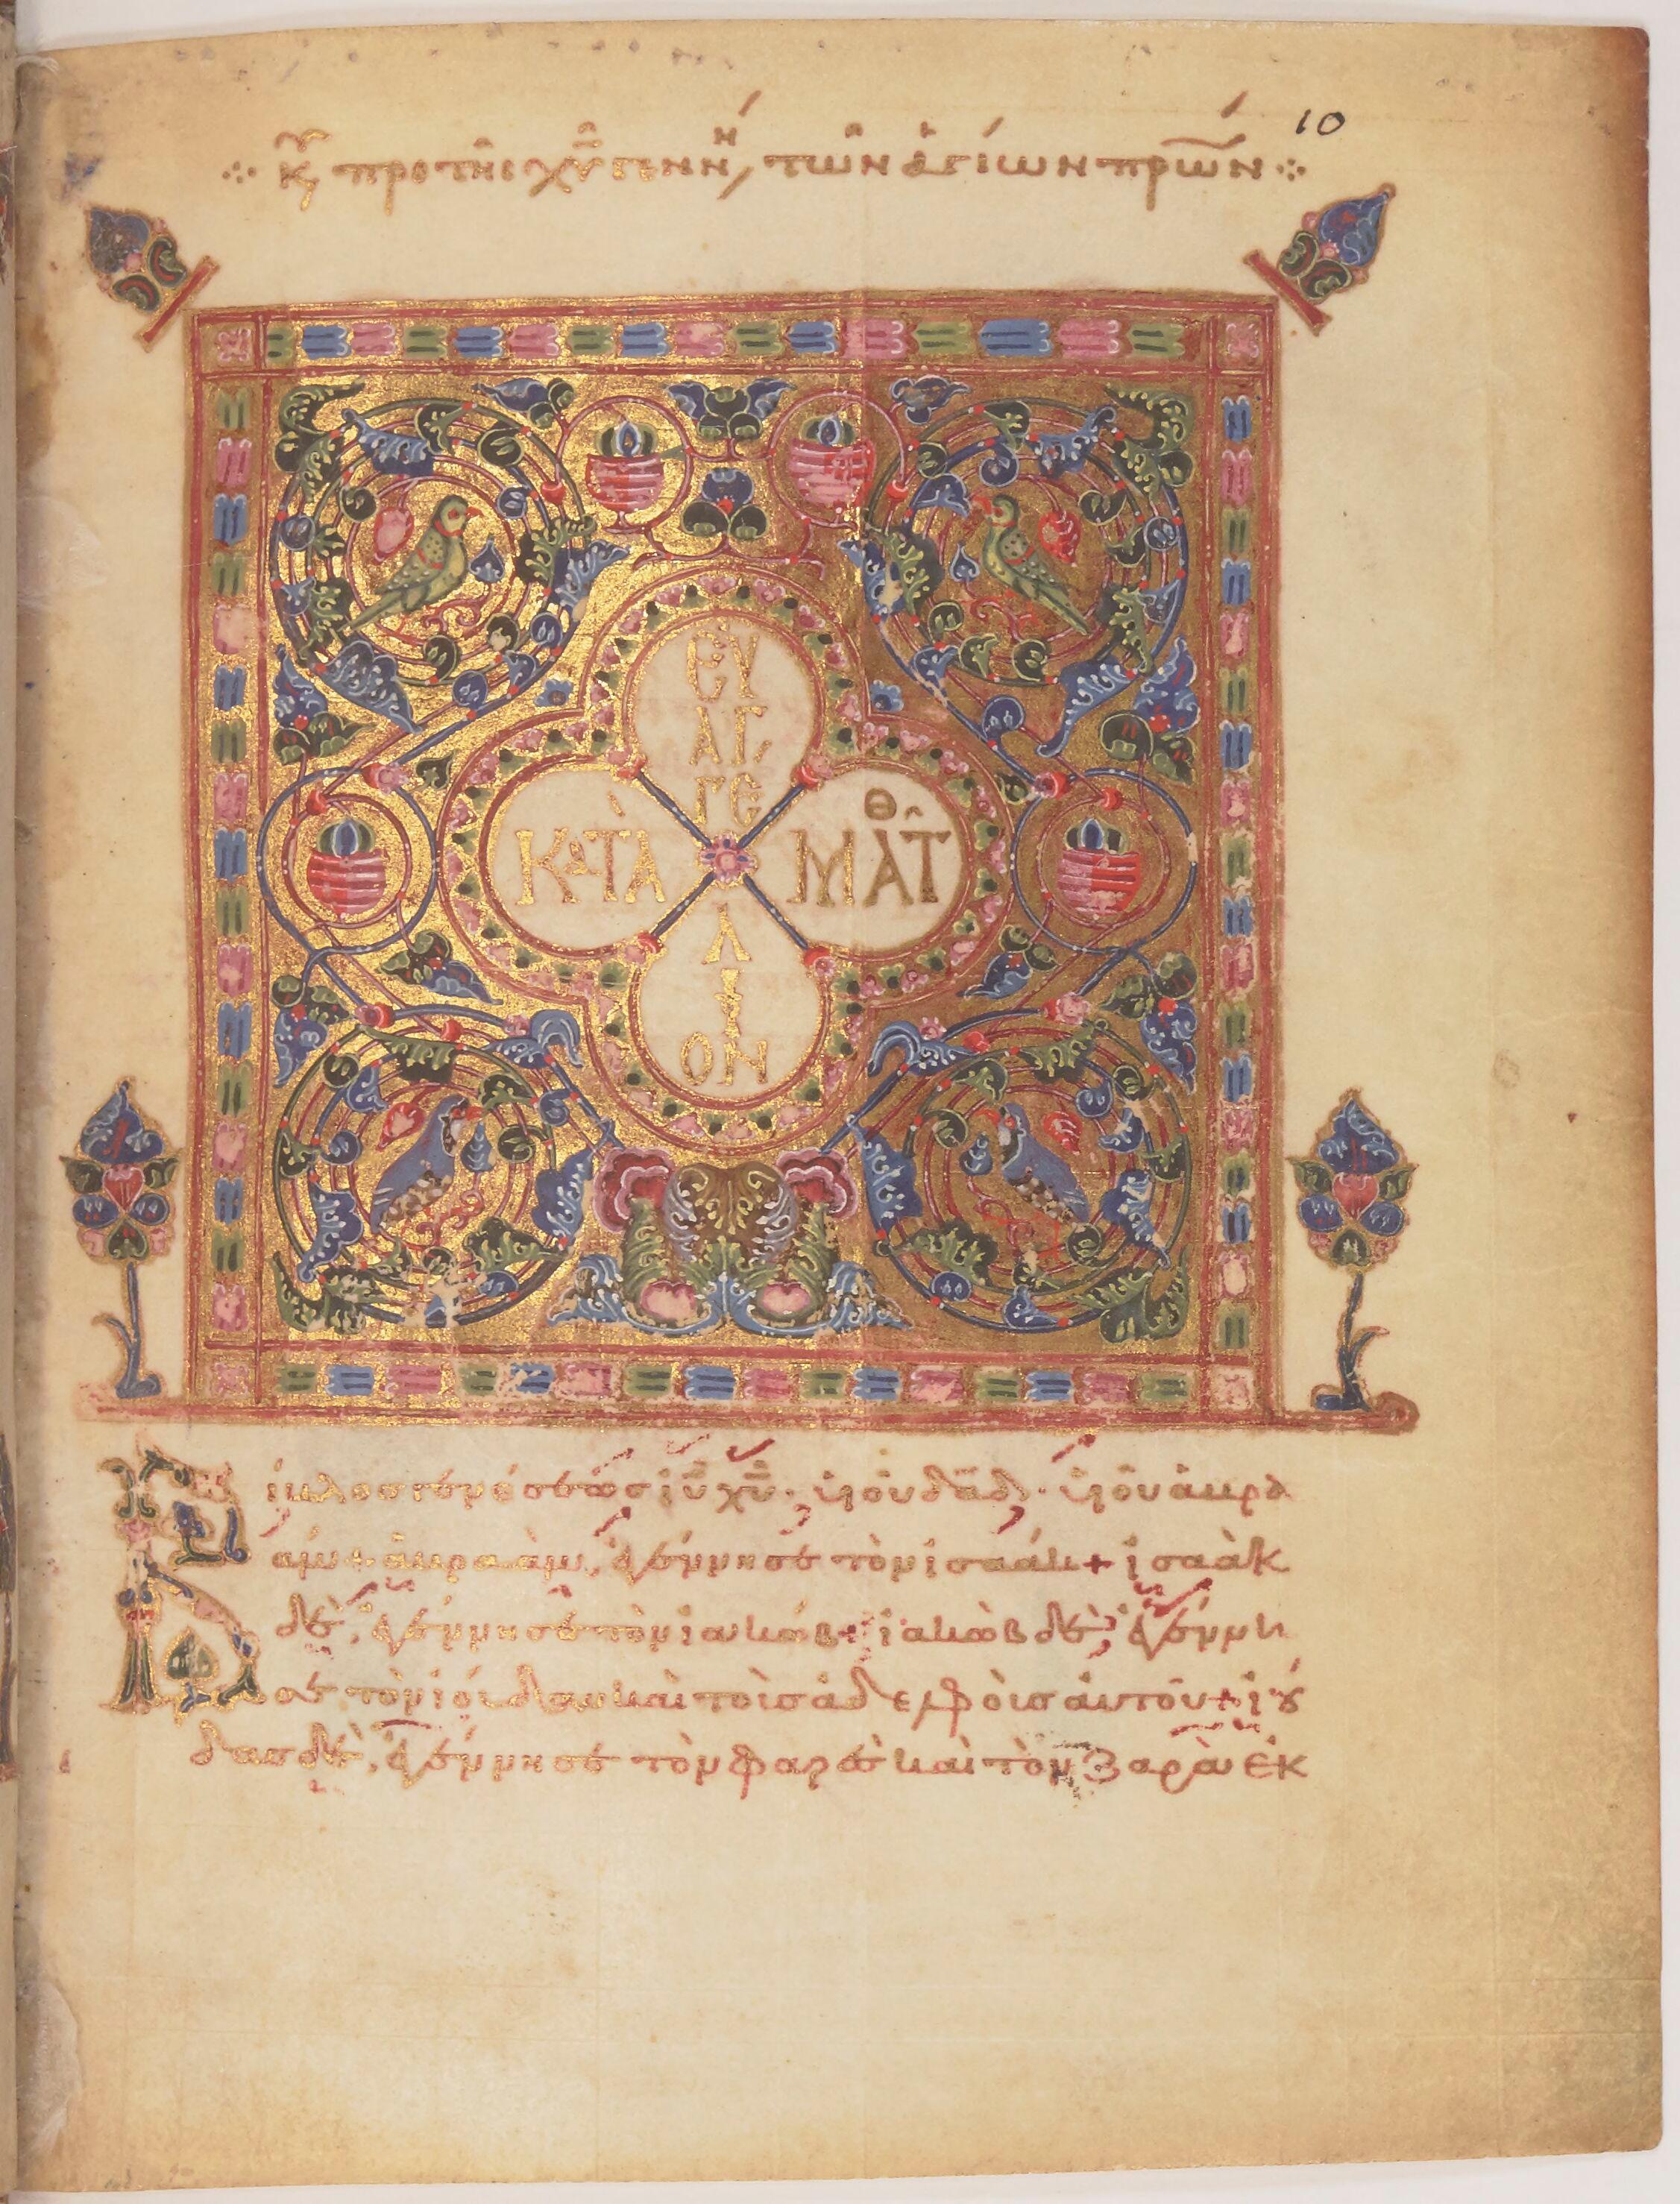 Κ͞υ πρὸ τῆς χ͞υ γενν, τῶν ἁγίων π͞ρων
10
ΕΥ
ΑΓ
ΓΕ
ΚΑΤᾺ ΜΑΤΘ
Λ
Ι
ΟΝ
Βίβλος γενέσεως ἰ͞υ χ͞υ· υἱοῦ δα͞δ· υἱοῦ ἀβρα
αμ + ἀβραὰμ, ἐγέννησε τὸν ἰσαάκ + ἰσαὰκ
δὲ, ἐγέννησε τὸν ἰακώβ + ἰακὼβ δὲ, ἐγέννη
σε τὸν ἰούδαν καὶ τοὺς ἀδελφοὺς αὐτοῦ + ἰού
δας δὲ, ἐγέννησε τὸν φαρὲς καὶ τὸν ζαρὰ ἐκ